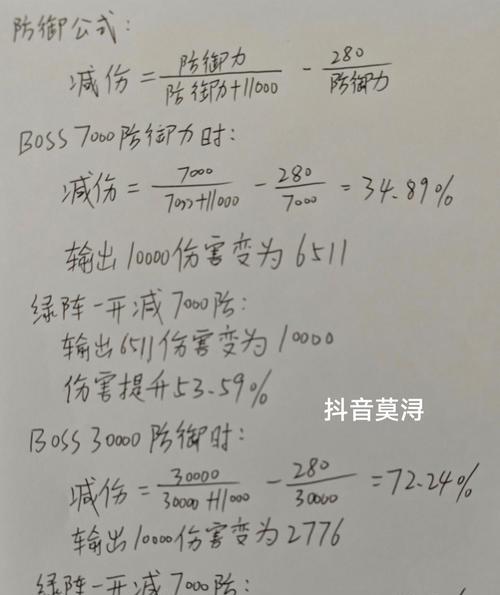 防御公式:
减伤 = 防御力/防御力+11000 - 280/防御力
BOSS 7000防御力时:
减伤 = 7000/7000+11000 - 280/7000 = 34.89%
输出10000伤害变为6511
绿阵一开减7000防:
输出6511伤害变为10000
伤害提升53.59%
抖音莫浔
BOSS 30000防御时:
减伤 = 30000/30000+11000 - 280/30000 = 72.24%
输出10000伤害变为2776
绿阵一开减7000防: